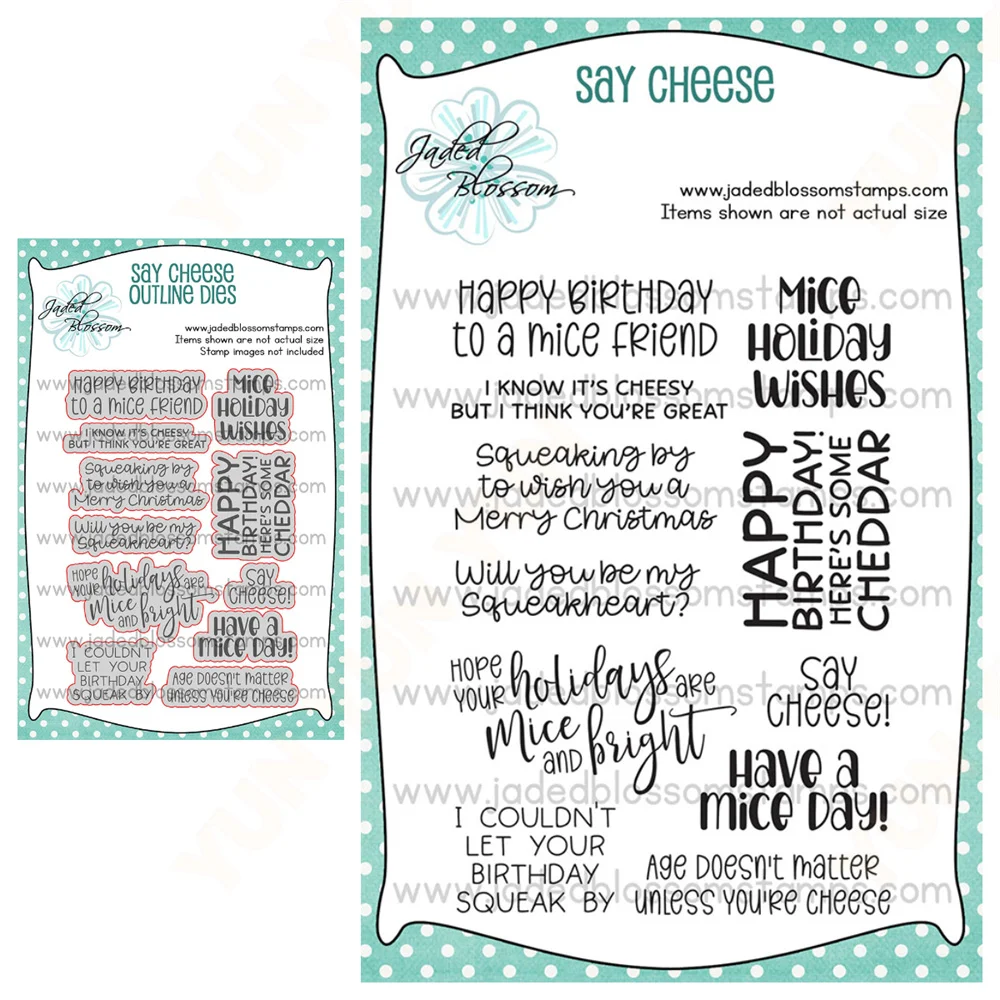 SAY CHEESE
OUTLINE DIES
Jaded
Blossom
www.jadedblossomstamps.com
Items shown are not actual size
Stamp images not included
HAPPY BIRTHDAY
to a mice friend
I KNOW IT'S CHEESY
BUT I THINK YOU'RE GREAT
Squeaking by
to wish you a
Merry Christmas
Will you be my
Squeakheart?
HOPE
YOUR holidays ARE
mice
AND bright
I COULDN'T
LET YOUR
BIRTHDAY
SQUEAK BY
Mice
HOLiDAY
WiSHES
HAPPY
BIRTHDAY!
HERE'S SOME
CHEDDAR
SAY
CHEESE!
HAVE a
mice DAY!
Age DOESN'T matter
unless you're cheese
www.jadedblossomstamps.com
www.jadedblossomstamps.com
www.jadedblossomstamps.com
www.jadedblossomstamps.com
www.jadedblossomstamps.com
www.jadedblossomstamps.com
SAY CHEESE
Jaded
Blossom
www.jadedblossomstamps.com
Items shown are not actual size
HAPPY BIRTHDAY
to a mice friend
I KNOW IT'S CHEESY
BUT I THINK YOU'RE GREAT
Squeaking by
to wish you a
Merry Christmas
Will you be my
Squeakheart?
HOPE
YOUR holidays ARE
mice
AND bright
I COULDN'T
LET YOUR
BIRTHDAY
SQUEAK BY
Mice
HOLiDAY
WiSHES
HAPPY
BIRTHDAY!
HERE'S SOME
CHEDDAR
SAY
CHEESE!
HAVE a
mice DAY!
Age DOESN'T matter
unless you're cheese
www.jadedblossomstamps.com
www.jadedblossomstamps.com
www.jadedblossomstamps.com
www.jadedblossomstamps.com
www.jadedblossomstamps.com
www.jadedblossomstamps.com